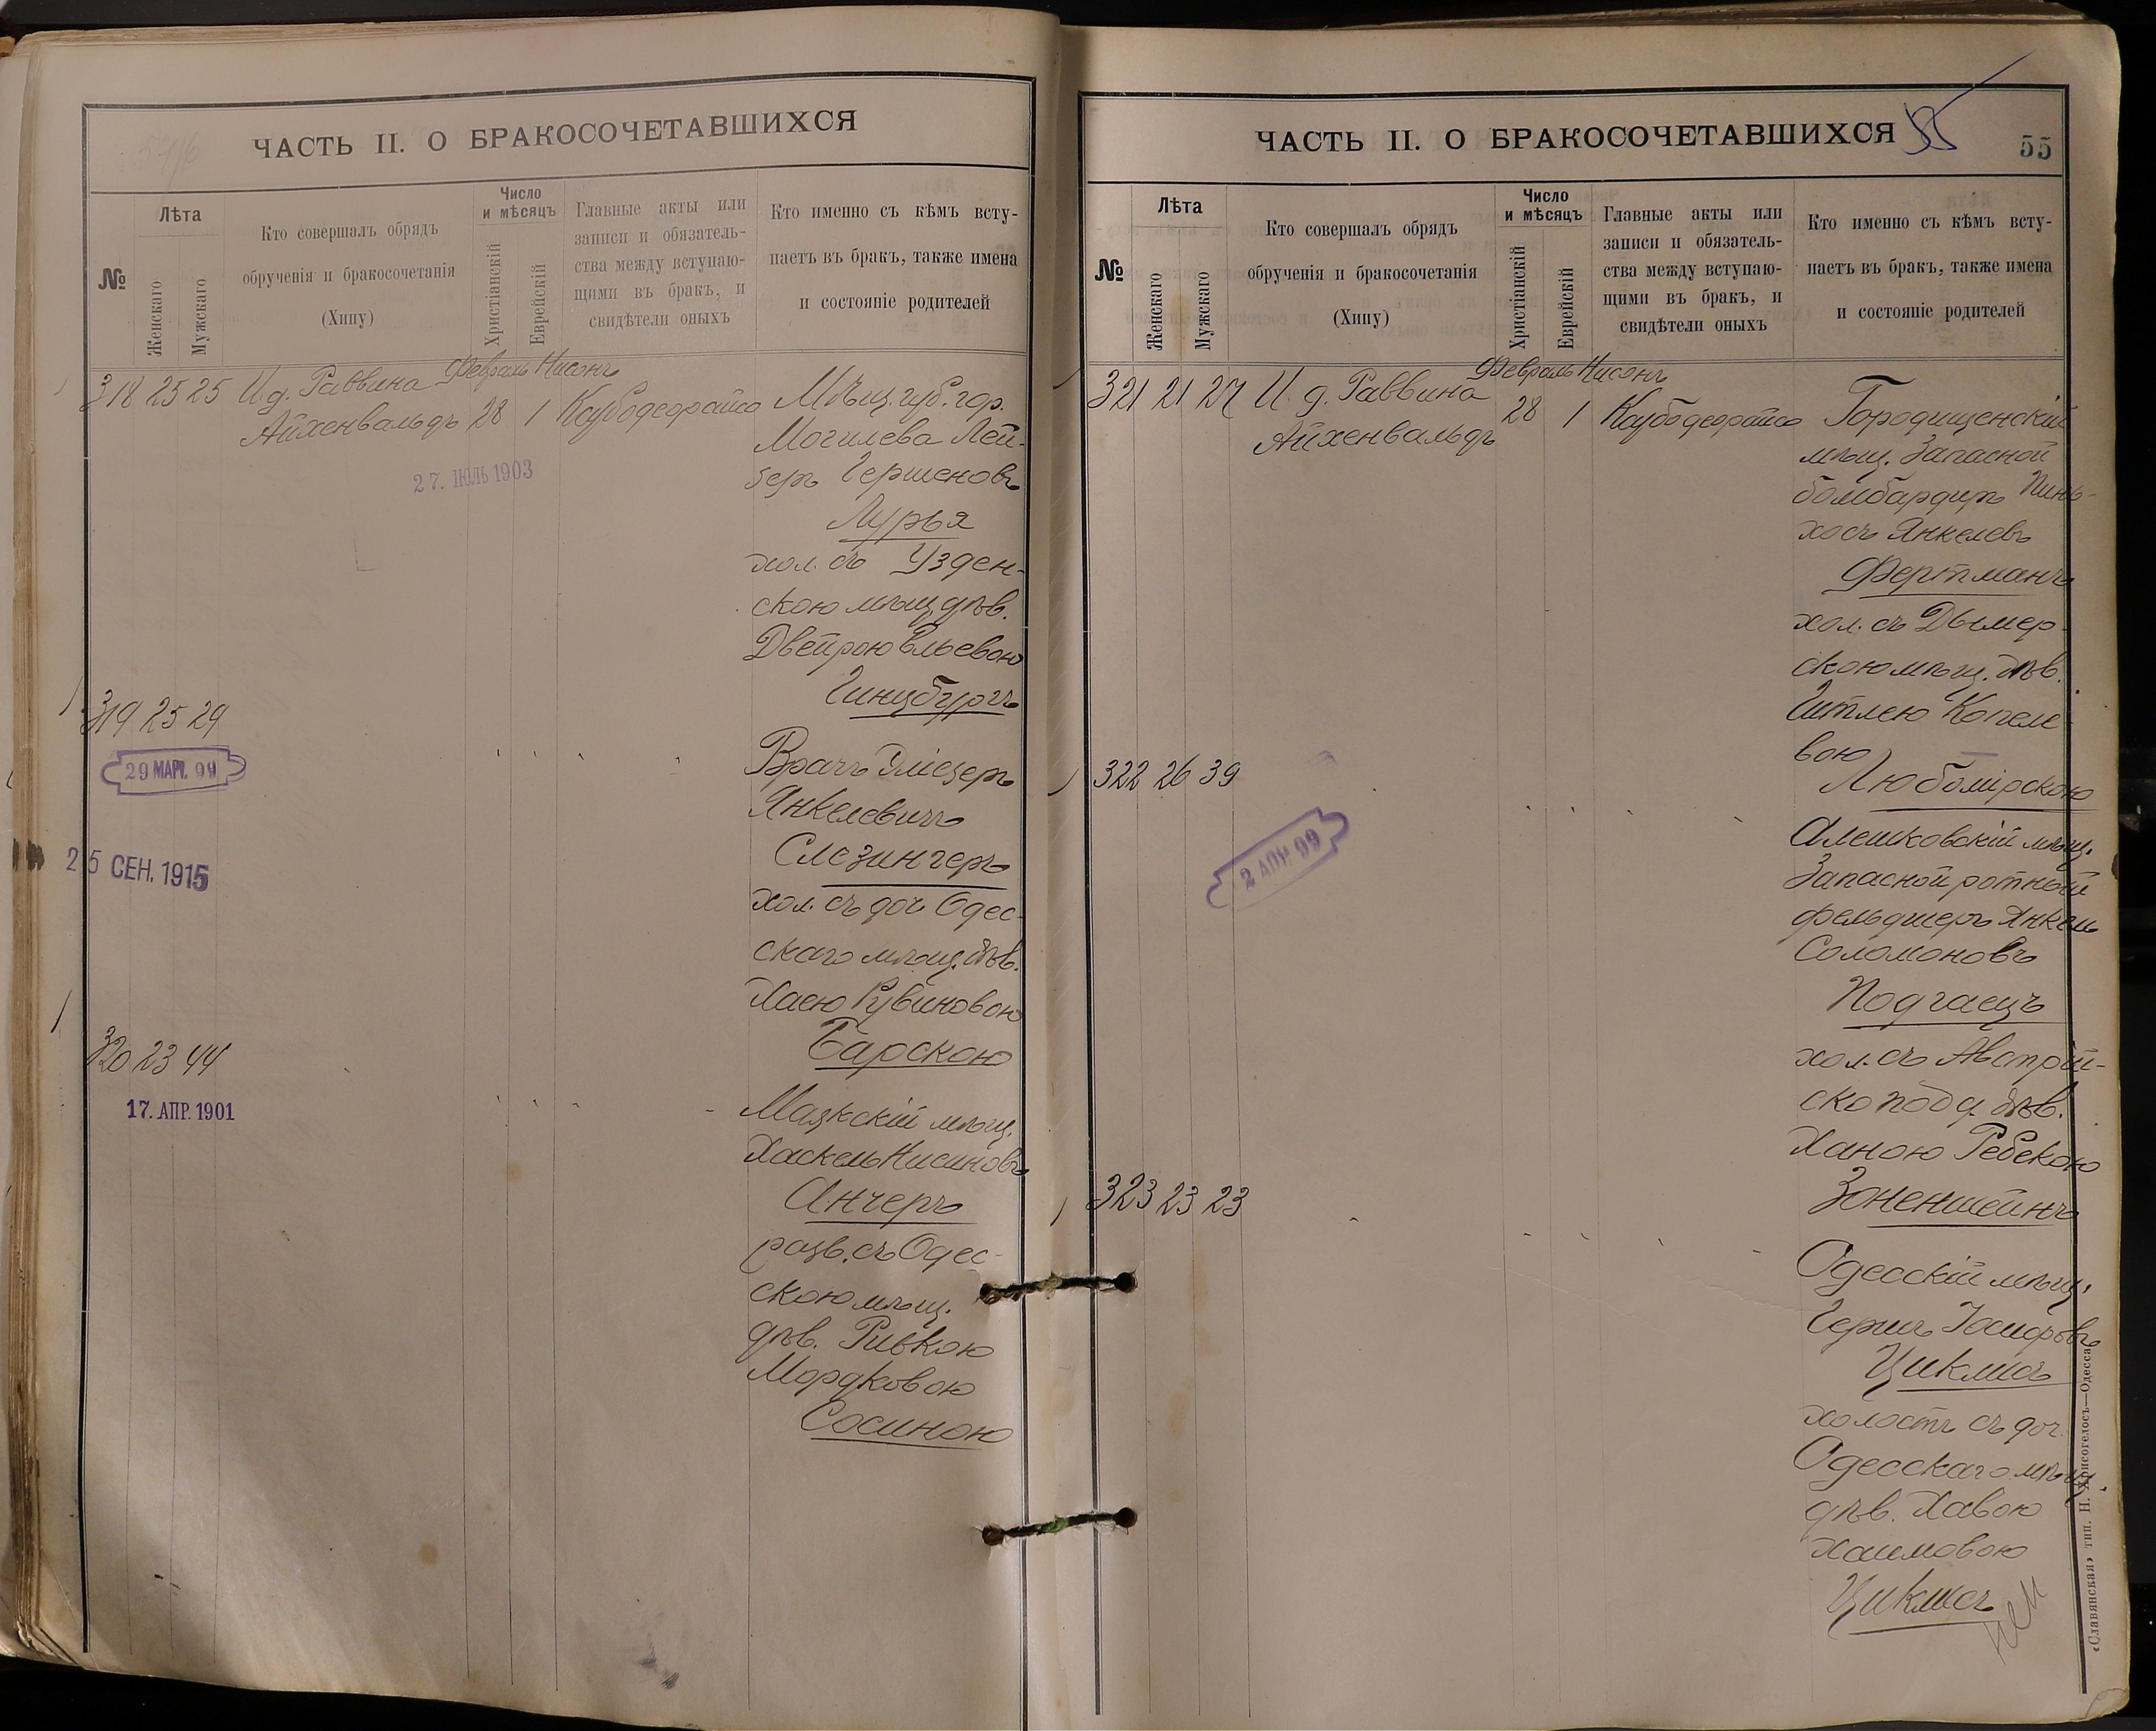 ЧАСТЬ II. О БРАКОСОЧЕТАВШИХСЯ
№
Лѣта
Женскаго
Мужскаго
Кто совершалъ обрядъ
обрученія и бракосочетанія
(Хипу)
Число
и мѣсяцъ
Христіанскій
Еврейскій
Главные акты или
записи и обязатель-
ства между вступаю-
щими въ бракъ, и
свидѣтели оныхъ
Кто именно съ кѣмъ всту-
паетъ въ бракъ, также имена
и состояніе родителей
318 25 25 И. д. Раввина Февраль Нисонъ
Айхенвальдъ 28 1
27. ІЮЛЬ 1903
Мѣщ. губ. гор.
Могилева Лей-
беръ Гершеновъ
Лурья
хол. съ Узден-
скою мѣщ. дѣв.
Двейрою Ельевою
Гинцбургъ
319 25 29
29 МАР. 99
25 СЕН. 1915
Врачъ Эліезеръ
Янкелевичъ
Слезингеръ
хол. съ доч. Одес-
скаго мѣщ. дѣв.
Хаею Рувиновою
Барскою
320 23 44
17. АПР. 1901
Маякскій мѣщ.
Хаскель Нисиновъ
Анчеръ
разв. съ Одес-
скою мѣщ.
дѣв. Ривкою
Мордковою
Сосиною
ЧАСТЬ II. О БРАКОСОЧЕТАВШИХСЯ
55
55
№
Лѣта
Женскаго
Мужскаго
Кто совершалъ обрядъ
обрученія и бракосочетанія
(Хипу)
Число
и мѣсяцъ
Христіанскій
Еврейскій
Главные акты или
записи и обязатель-
ства между вступаю-
щими въ бракъ, и
свидѣтели оныхъ
Кто именно съ кѣмъ всту-
паетъ въ бракъ, также имена
и состояніе родителей
321 21 27 И. д. Раввина Февраль Нисонъ
Айхенвальдъ 28 1
Городищенскій
мѣщ. Запасной
бомбардиръ Пинь-
хосъ Янкелевъ
Фертманъ
хол. съ Дымер-
скою мѣщ. дѣв.
Гитлею Копеле-
вою
Любомірскою
322 26 39
2 АПР. 99
Алешковскій мѣщ.
Запасной ротный
фельдшеръ Янкель
Соломоновъ
Подгаецъ
хол. съ Австрій-
ско под. дѣв.
Ханою Ребекою
Зоненшейнъ
323 23 23
Одесскій мѣщ.
Гершъ Іосифовъ
Циклисъ
холостъ съ доч.
Одесскаго мѣщ.
дѣв. Хавою
Хаимовою
Циклисъ
«Славянская» тип. Н. Хрисогелосъ—Одесса